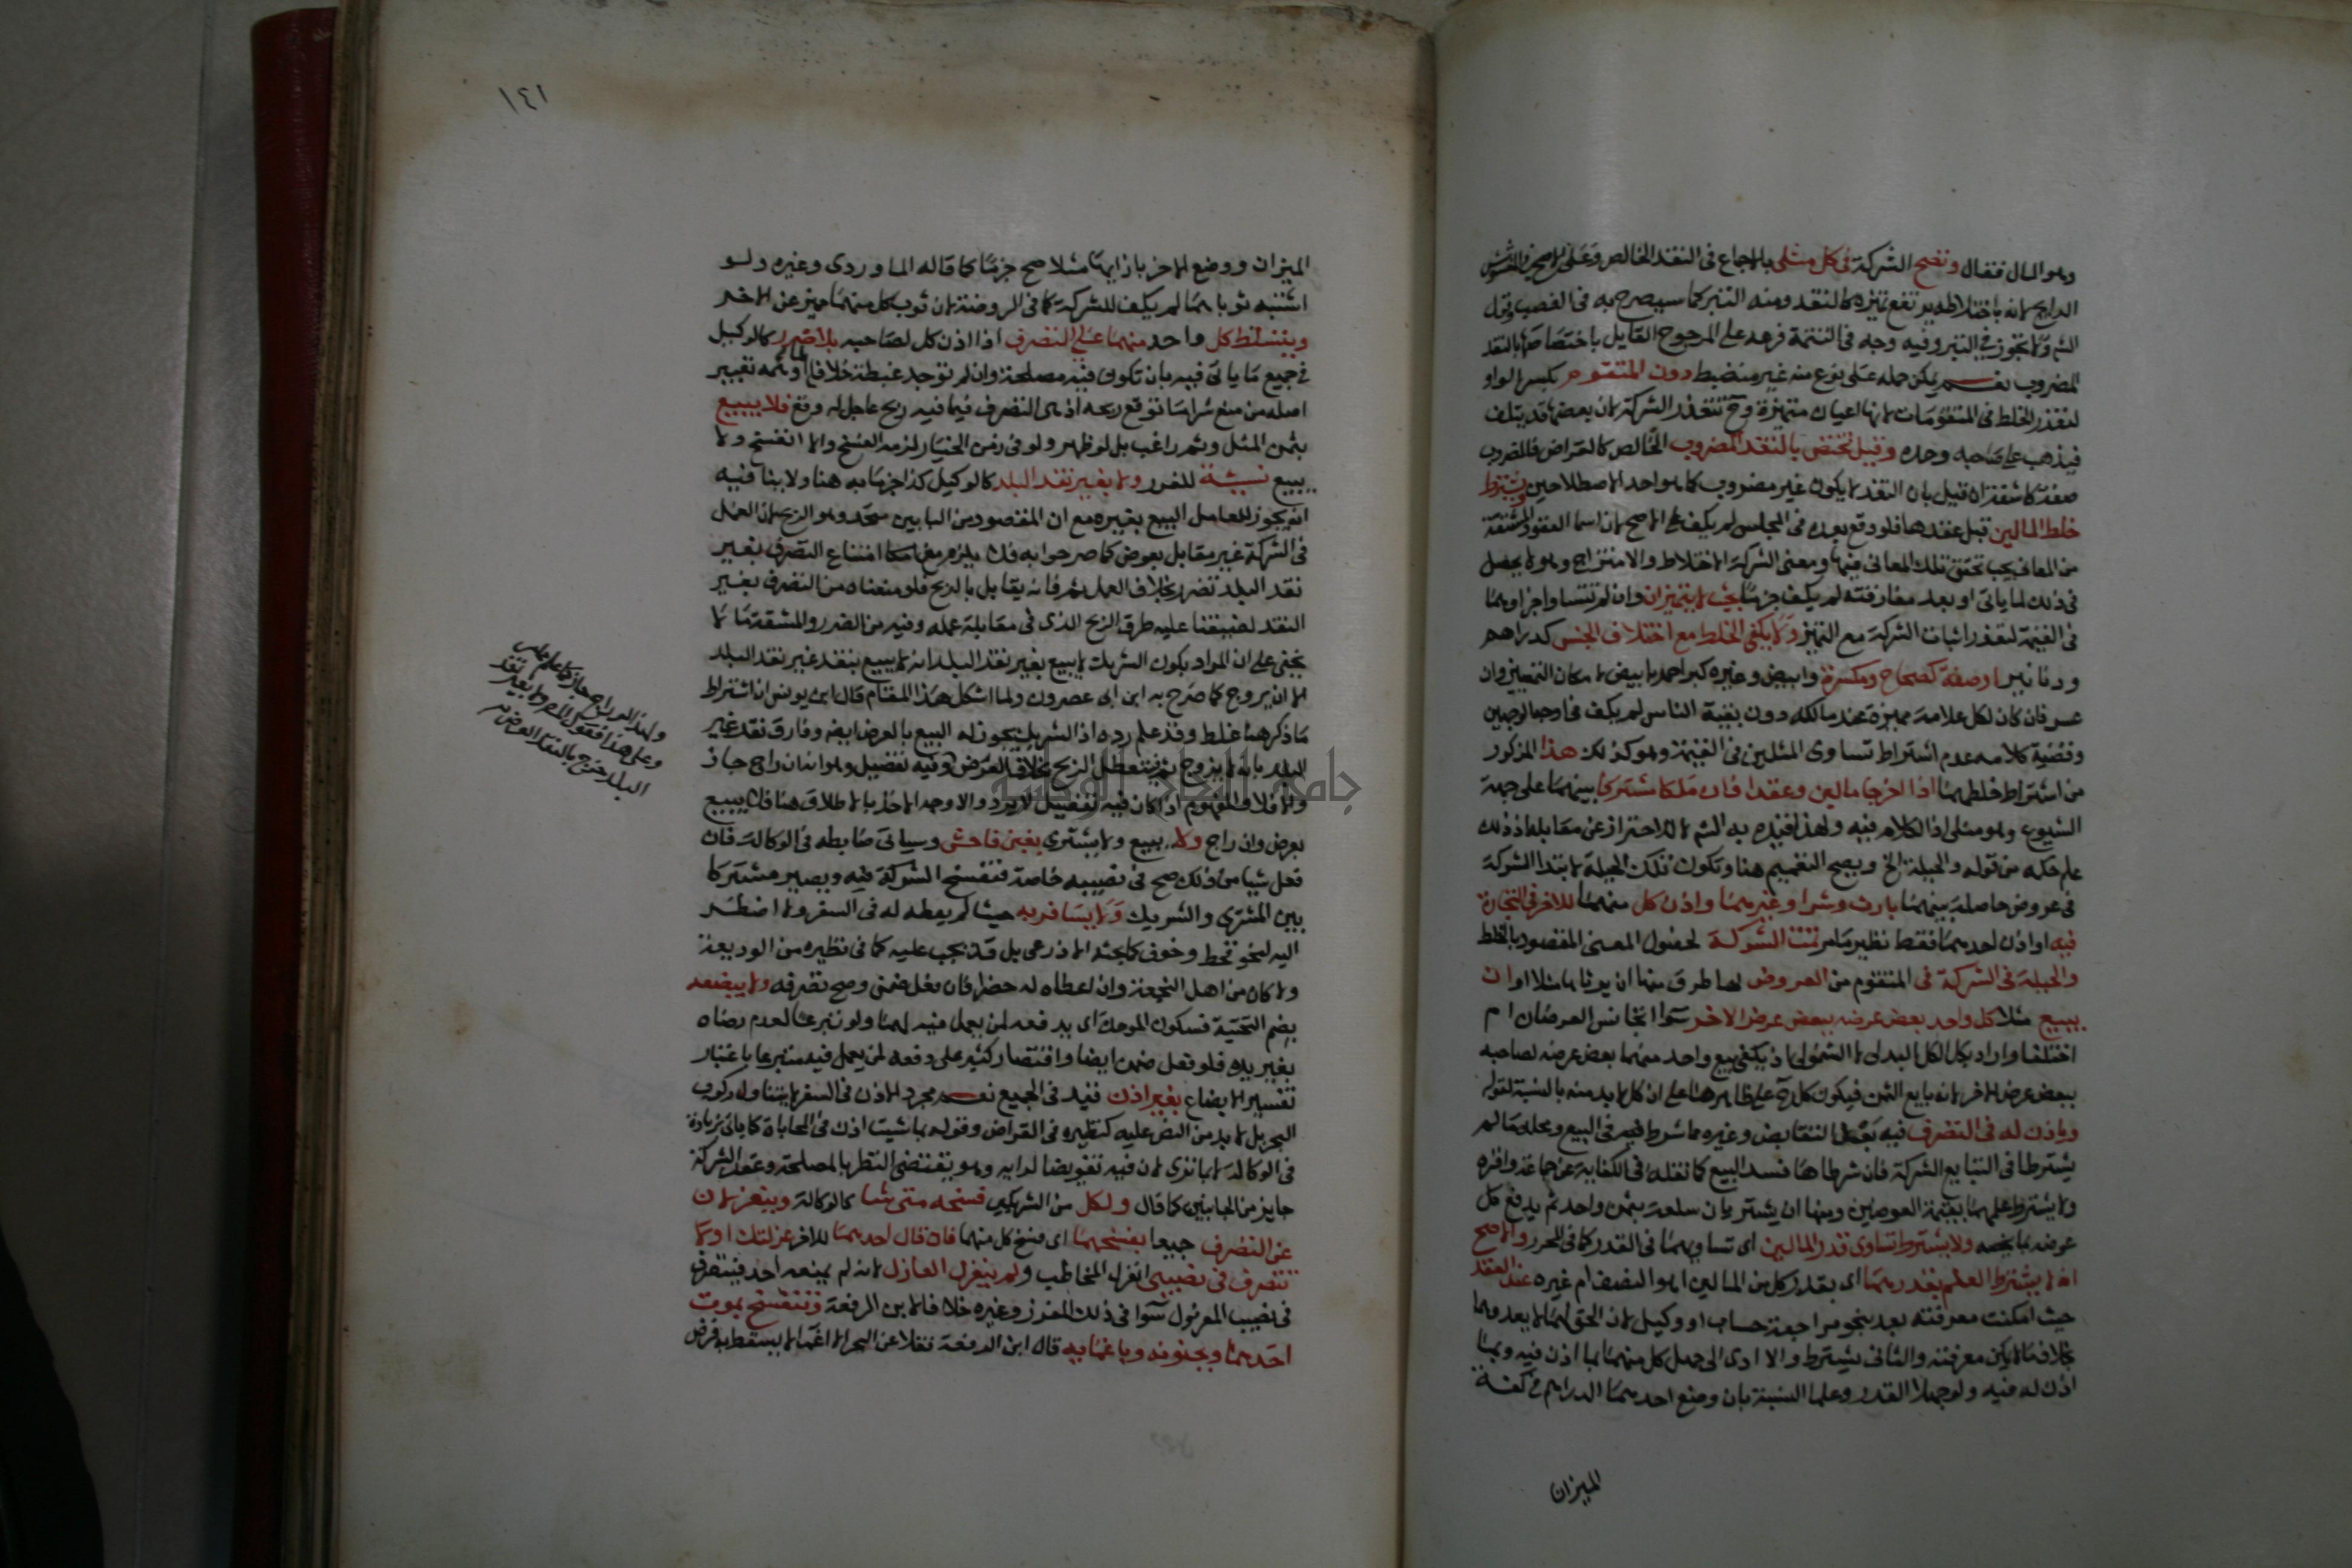 وهو المال فقال وتصح الشركة في كل مثلي بالاجماع في النقد الخالص وعلى الاصح في المغشوش
الرايج لانه باختلاطه يرتفع تميزه كالنقد ومنه التبر كما سيصرح به في الغصب وقول
الشم ولا تجوز في التبر وفيه وجه في التتمة فرعه على المرجوح القايل باختصاصها بالنقد
المضروب نعم يمكن حمله على نوع منه غير منضبط دون المتقوم بكسر الواو
لتعذر الخلط في المتقومات لانها اعيان متميزة وح تتعذر الشركة لان بعضها قد يتلف
فيذهب على صاحبه وحده وقيل تختص بالنقد المضروب الخالص كالقراض فالمضروب
صفة كاشفة ان قيل بان النقد لا يكون غير مضروب كما هو احد الاصطلاحين ويشترط
خلط المالين قبل عقدها فلو وقع بعده في المجلس لم يكف على الاصح لان اسما العقود المشتقة
من المعاني يجب تحقق تلك المعاني فيها ومعنى الشركة الاختلاط والامتزاج وهو لا يحصل
في ذلك لما ياتي او بعد مفارقته لم يكف جزما بحيث لا يتميزان وان لم تتساو اجزاوهما
في القيمة لتعذر اثبات الشركة مع التميز ولا يكفي الخلط مع اختلاف الجنس كدراهم
ودنانير او صفة كصحاح ومكسرة وابيض وغيره كبر احمر بابيض لامكان التمييز وان
عسر فان كان لكل علامة مميزة عند مالكه دون بقية الناس لم يكف في اوجه الوجهين
وقضية كلامه عدم اشتراط تساوي المثلين في القيمة وهو كذلك هذا المذكور
من اشتراط خلطهما اذا اخرجا مالين وعقدا فان ملكا مشتركا بينهما على جهة
الشيوع وهو مثلي اذ الكلام فيه ولهذا قيده به الشم لا للاحتراز عن مقابله اذ ذلك
علم حكمه من قوله والحيلة الخ ويصح التعميم هنا وتكون تلك الحيلة لابتدا الشركة
في عروض حاصلة بينهما بارث وشرا وغيرهما واذن كل منهما للاخر في التجارة
فيه او اذن احدهما فقط نظير ما مر تمت الشركة لحصول المعنى المقصود بالخلط
والحيلة في الشركة في المتقوم من العروض لها طرق منها ان يرثاها مثلا او ان
يبيع مثلا كل واحد بعض عرضه ببعض عرض الاخر سوا تجانس العرضان ام
اختلفا واراد بكل الكل البدلي لا الشمولي اذ يكفي بيع واحد منهما بعض عرضه لصاحبه
ببعض عرض الاخر لانه بايع الثمن فيكون كل ح على ظاهر هنا على ان كل لا بد منه بالنسبة لقوله
وياذن له في التصرف فيه بعد التقابض وغيره مما شرط فيه في البيع ومحله ما لم
يشترطا في التبايع الشركة فان شرطاها فسد البيع كما نقله في الكفاية عن جماعة واقره
ولا يشترط علمهما بقيمة العوضين ومنها ان يشتريا سلعة بثمن واحد ثم يدفع كل
عرضه بما يخصه ولا يشترط تساوي قدر المالين اي تساويهما في القدر كما في المحرر والاصح
انه لا يشترط العلم بقدرهما اي بقدر كل من المالين اهو النصف ام غيره عند العقد
حيث امكنت معرفته بعد بنحو مراجعة حساب او وكيل لان الحق لهما لا يعدوهما
بخلاف ما لا يمكن معرفته والثاني يشترط والا ادى الى جهل كل منهما بما اذن فيه وبما
اذن له فيه ولو جهلا القدر وعلما النسبة بان وضع احدهما الدراهم في كفة
الميزان
١٤١
الميزان ووضع الاخر بازايها مثلا صح جزما كما قاله الماوردي وغيره ولو
اشتبه ثوباهما لم يكف للشركة كما في الروضة لان ثوب كل منهما مميز عن الاخر
ويتسلط كل واحد منهما على التصرف اذا اذن كل لصاحبه بلا ضرر كالوكيل
في جميع ما ياتي فيه بان تكون فيه مصلحة وان لم توجد غبطة خلافا لما اوهمه تعبير
اصله من منع شرا ما توقع ربحه اذ هي التصرف فيما فيه ربح عاجل له وقع فلا يبيع
بثمن المثل وثم راغب بل لو ظهر ولو في زمن الخيار لزمه الفسخ والا انفسخ ولا
يبيع نسيئة للغرر ولا بغير نقد البلد كالوكيل كذا جزما به هنا ولا ينافيه
انه يجوز للعامل البيع بغيره مع ان المقصود من البابين متحد وهو الربح لان العمل
في الشركة غير مقابل بعوض كما صرحوا به فلا يلزم من امتناع التصرف بغير
نقد البلد تضرر بخلاف العمل ثم فانه يقابل بالربح فلو منعناه من التصرف بغير
النقد لضيقنا عليه طرق الربح الذي في مقابلة عمله وفيه من الضرر والمشقة ما لا
يخفى على ان المراد بكون الشريك لا يبيع بغير نقد البلد انه لا يبيع بنقد غير نقد البلد
الا ان يروج كما صرح به ابن ابي عصرون ولما اشكل هذا المقام قال ابن يونس ان اشتراط
ما ذكر هنا غلط وقد علم رده اذ الشريك يجوز له البيع بالعرض ايضا وفارق نقد غير
البلد بانه لا يروج ثم فيتعطل الربح بخلاف العرض وفيه تفضيل وهو انه ان راج جاز
والا فلا والمفهوم اذا كان فيه تفصيل لا يرد والاوجه الاخذ بالاطلاق هنا فلا يبيع
بعرض وان راج ولا يبيع ولا يشتري بغبن فاحش وسياتي ضابطه في الوكالة فان
فعل شيا من ذلك صح في نصيبه خاصة فتنفسخ الشركة فيه ويصير مشتركا
بين المشتري والشريك ولا يسافر به حيث لم يعطه له في السفر ولا اضطر
اليه لنحو قحط وخوف كما بحثه الاذرعي بل قد يجب عليه كما في نظيره من الوديعة
ولا كان من اهل النجعة وان اعطاه له حضرا فان فعل ضمن وصح تصرفه ولا يبضعه
بضم التحتية فسكون الموحدة اي يدفعه لمن يعمل فيه لهما ولو تبرعا لعدم رضاه
بغير يده فلو فعل ضمن ايضا واقتصار كثير على دفعه لمن يعمل فيه متبرعا باعتبار
تفسير الابضاع بغير اذن قيد في الجميع نعم مجرد الاذن في السفر لا يتناول ركوب
البحر بل لا بد من النص عليه كنظيره في القراض وقوله بما شيت اذن في المحاباة كما ياتي بزيادة
في الوكالة لا بما ترى لان فيه تفويضا لرايه وهو يقتضي النظر بالمصلحة وعقد الشركة
جايز من الجانبين كما قال ولكل من الشريكين فسخه متى شا كالوكالة وينعزلان
عن التصرف جميعا بفسخهما اي فسخ كل منهما فان قال احدهما للاخر عزلتك او لا
تتصرف في نصيبي انعزل المخاطب ولم ينعزل العازل لانه لم يمنعه احد فيتصرف
في نصيب المعزول سوا في ذلك المفرز وغيره خلافا لابن الرفعة وتنفسخ بموت
احدهما وبجنونه وباغمايه قال ابن الرفعة نقلا عن البحر الا اغما لا يسقط به فرض
ولهذا لو راج جاز
وعلى هذا فقول
البلد خرج بالنقد العرض